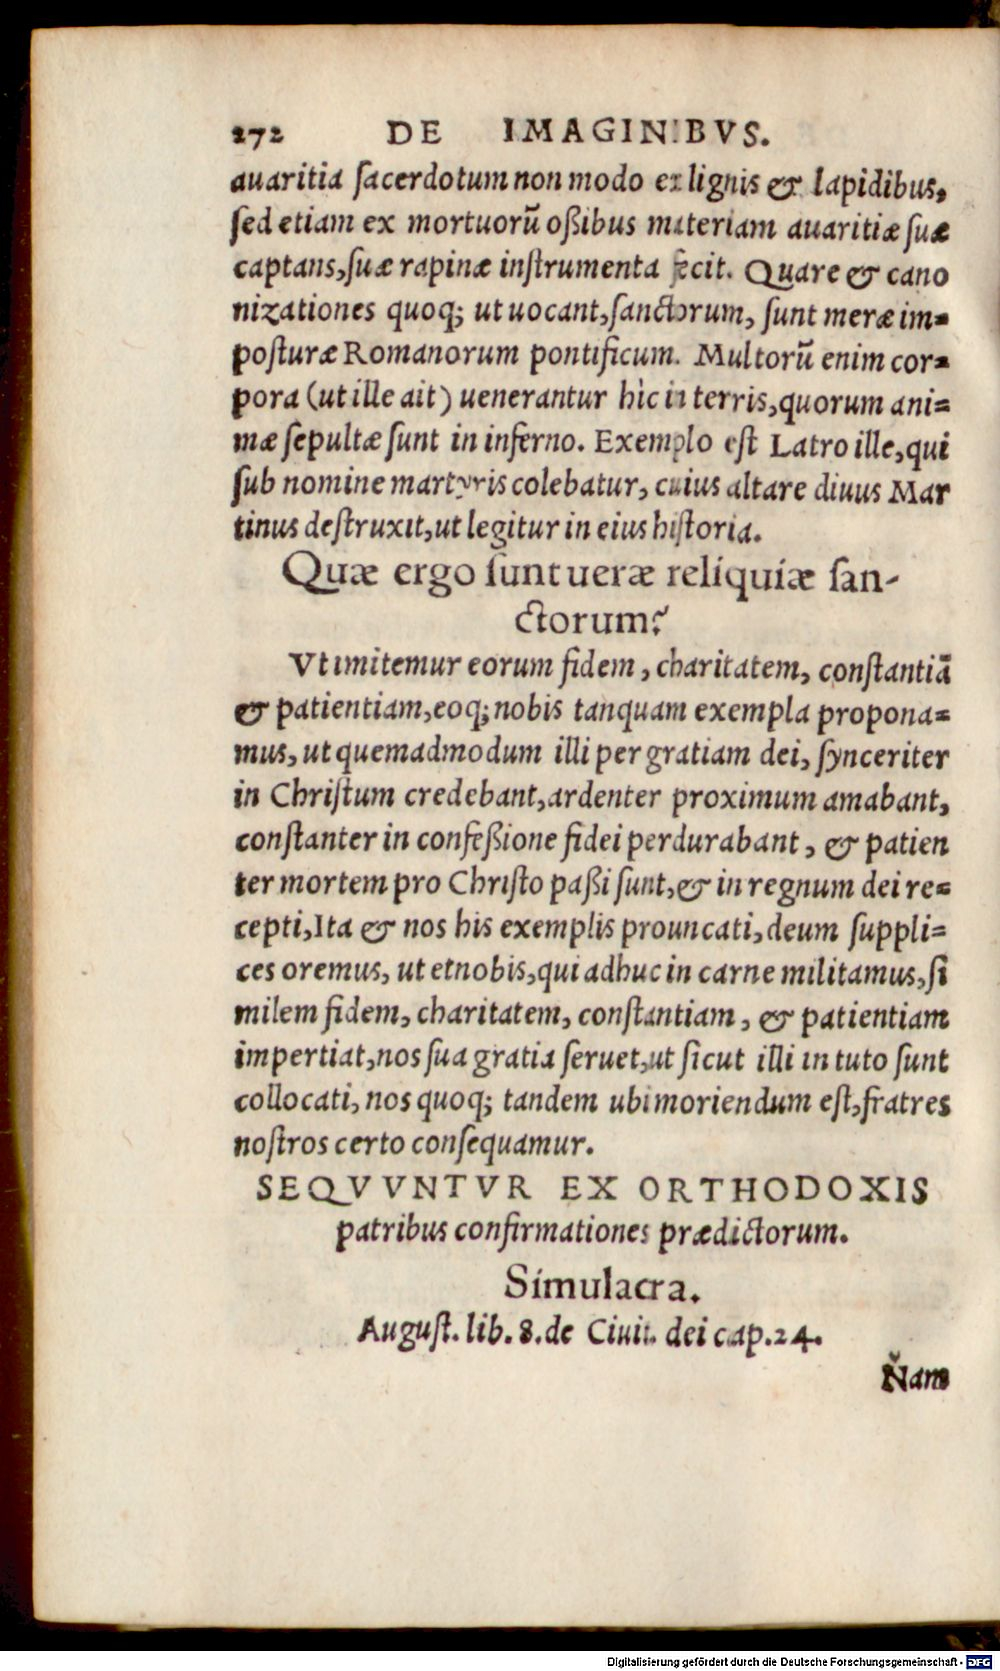 272 DE IMAGINIBVS.
auaritia sacerdotum non modo ex lignis & lapidibus,
sed etiam ex mortuorū oßibus materiam auaritiæ suæ
captans, suæ rapinæ instrumenta fecit. Quare & cano
nizationes quoq; ut uocant, sanctorum, sunt meræ im=
posturæ Romanorum pontificum. Multorū enim cor=
pora (ut ille ait) uenerantur hìc in terris, quorum ani=
mæ sepultæ sunt in inferno. Exemplo est Latro ille, qui
sub nomine martyris colebatur, cuius altare diuus Mar
tinus destruxit, ut legitur in eius historia.
Quæ ergo sunt ueræ reliquiæ san-
ctorum?
Vt imitemur eorum fidem, charitatem, constantiā
& patientiam, eoq; nobis tanquam exempla propona=
mus, ut quemadmodum illi per gratiam dei, synceriter
in Christum credebant, ardenter proximum amabant,
constanter in confeßione fidei perdurabant, & patien
ter mortem pro Christo paßi sunt, & in regnum dei re=
cepti, Ita & nos his exemplis prouncati, deum suppli=
ces oremus, ut et nobis, qui adhuc in carne militamus, si
milem fidem, charitatem, constantiam, & patientiam
impertiat, nos sua gratia seruet, ut sicut illi in tuto sunt
collocati, nos quoq; tandem ubi moriendum est, fratres
nostros certo consequamur.
SEQVVNTVR EX ORTHODOXIS
patribus confirmationes prædictorum.
Simulacra.
August. lib. 8. de Ciuit. dei cap. 24.
Nam
Digitalisierung gefördert durch die Deutsche Forschungsgemeinschaft - DFG